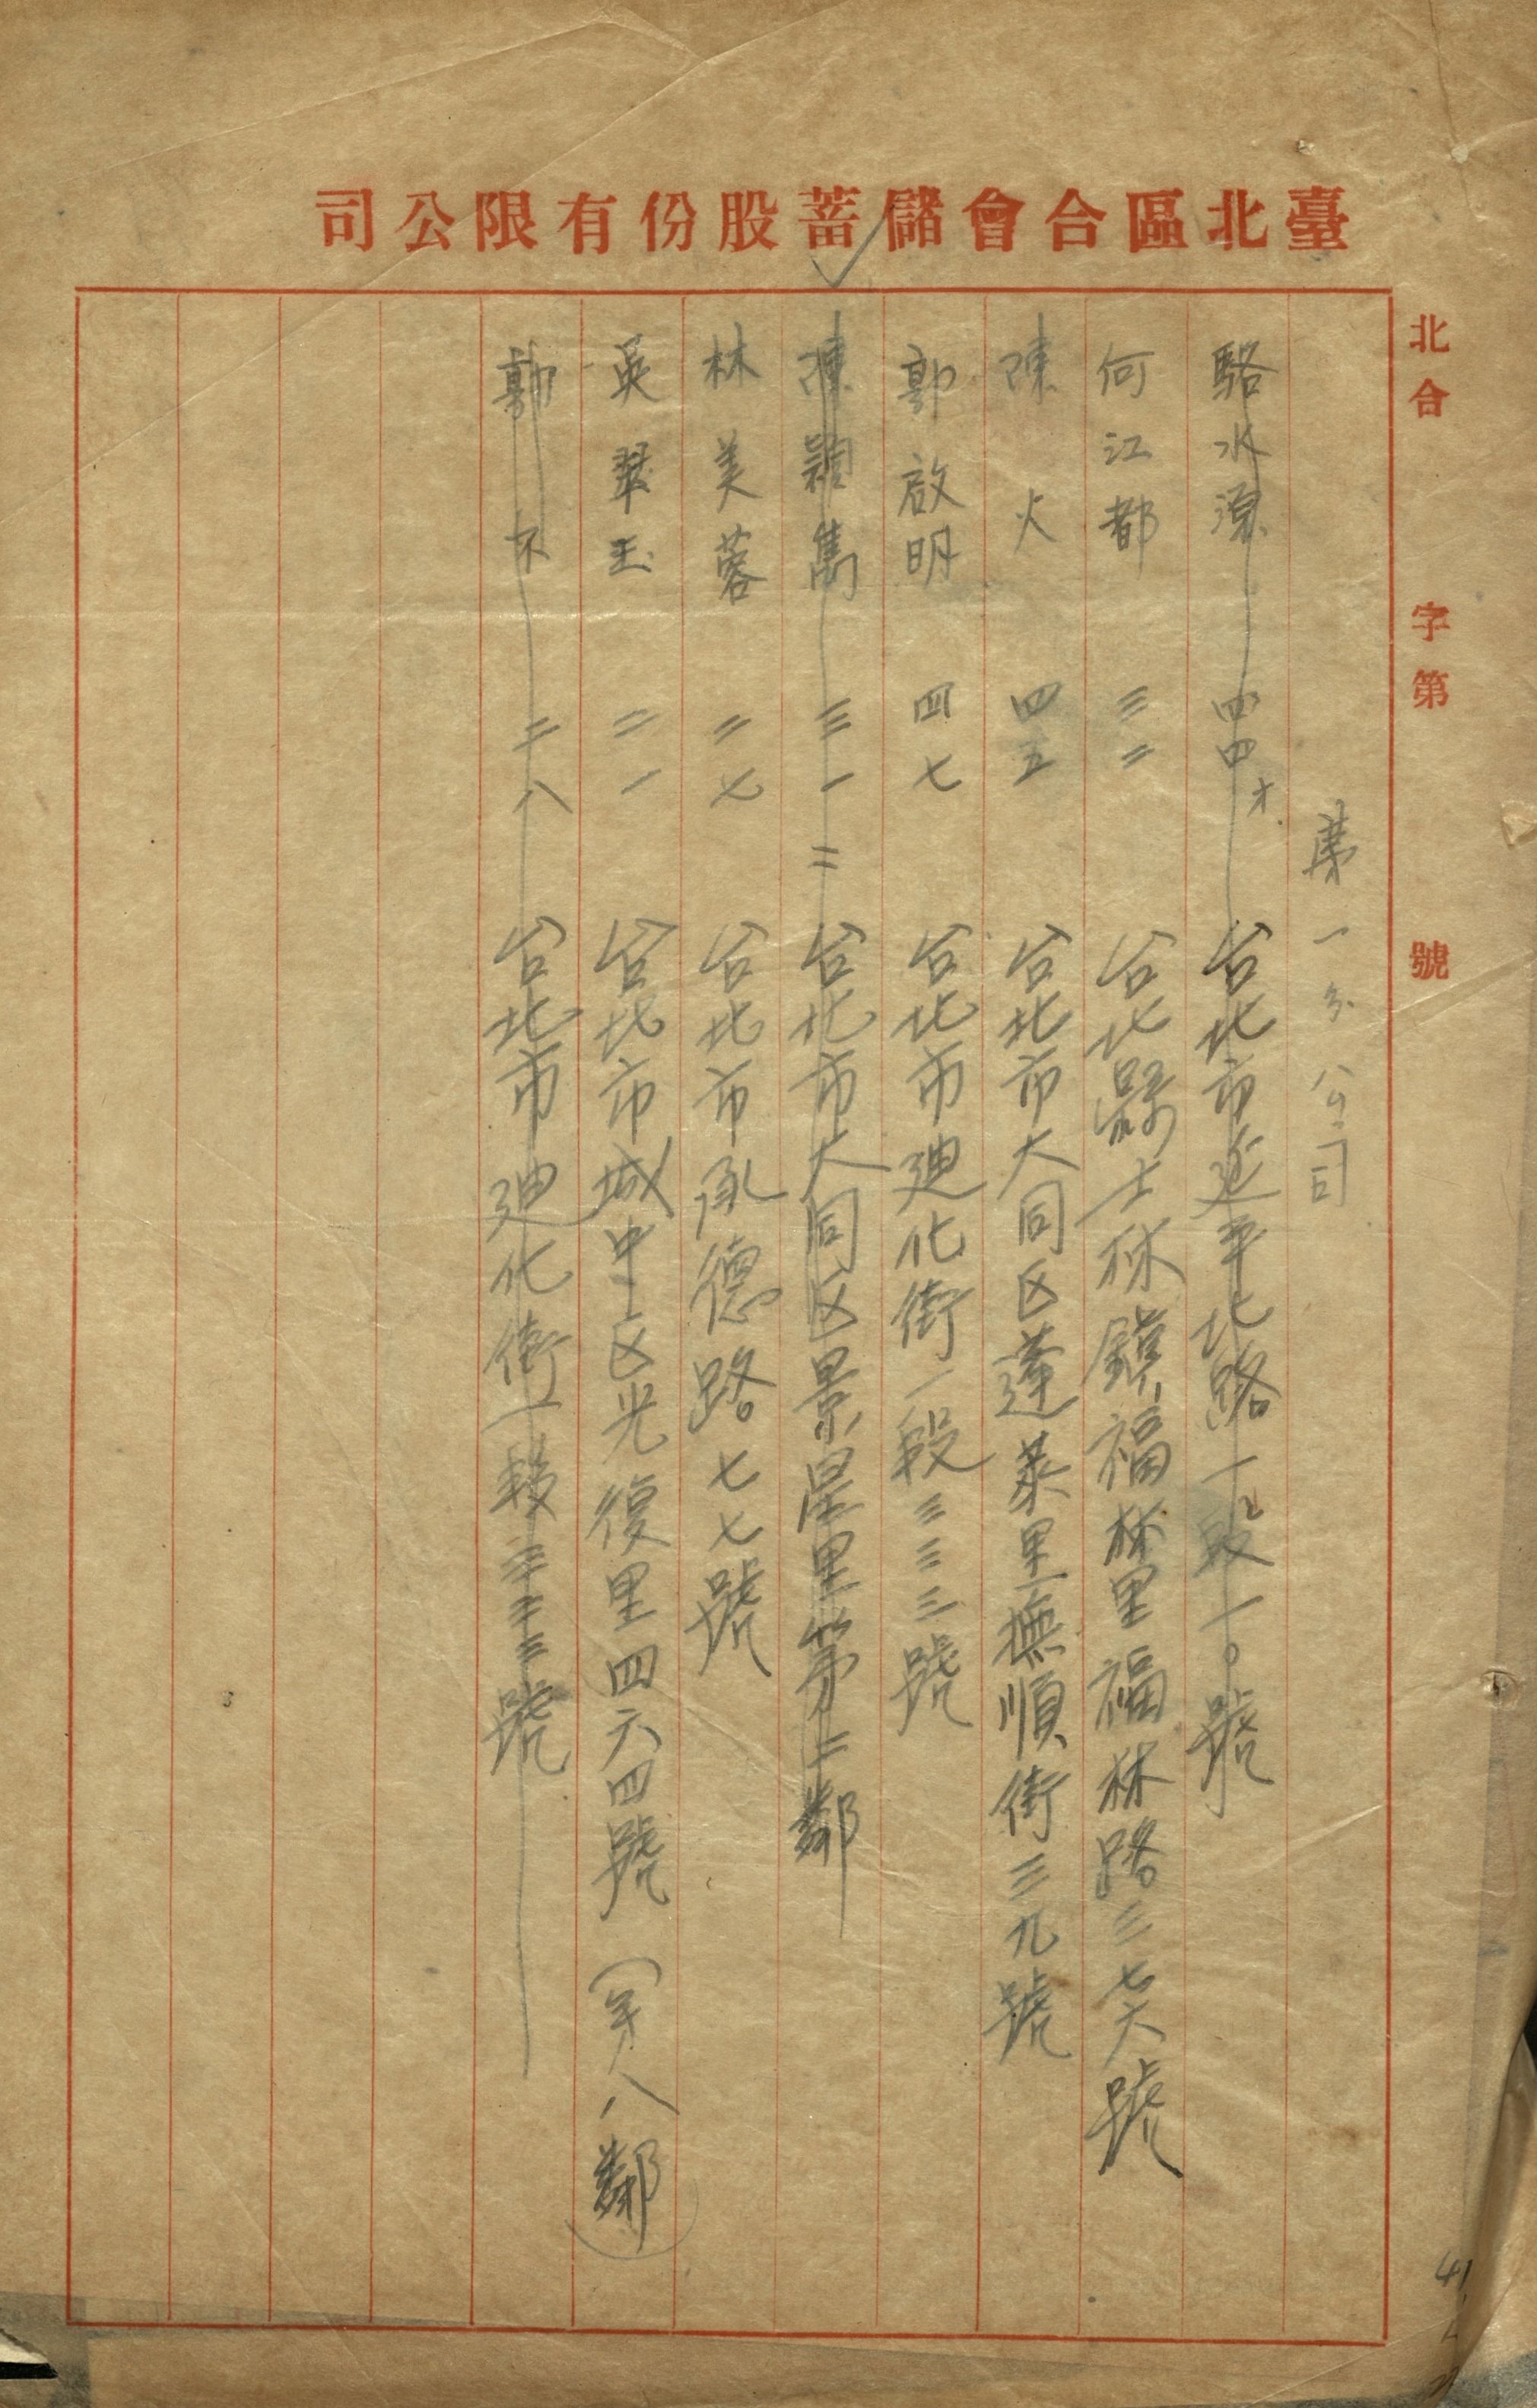 臺北區合會儲蓄股份有限公司
北合 字第 號
第一分公司
駱水源 四四才 台北市延平北路一段一〇號
何江都 三二 台北縣士林鎮福林里福林路三七六號
陳火 四五 台北市大同区蓬萊里撫順街三九號
郭啟明 四七 台北市迪化街一段三三三號
陳穎雋 三一 二 台北市大同区景星里第二鄰
林美蓉 二七 台北市承德路七七號
吳翠玉 二一 台北市城中区光復里四六四號（第八鄰）
郭 二八 台北市迪化街一段三三三號